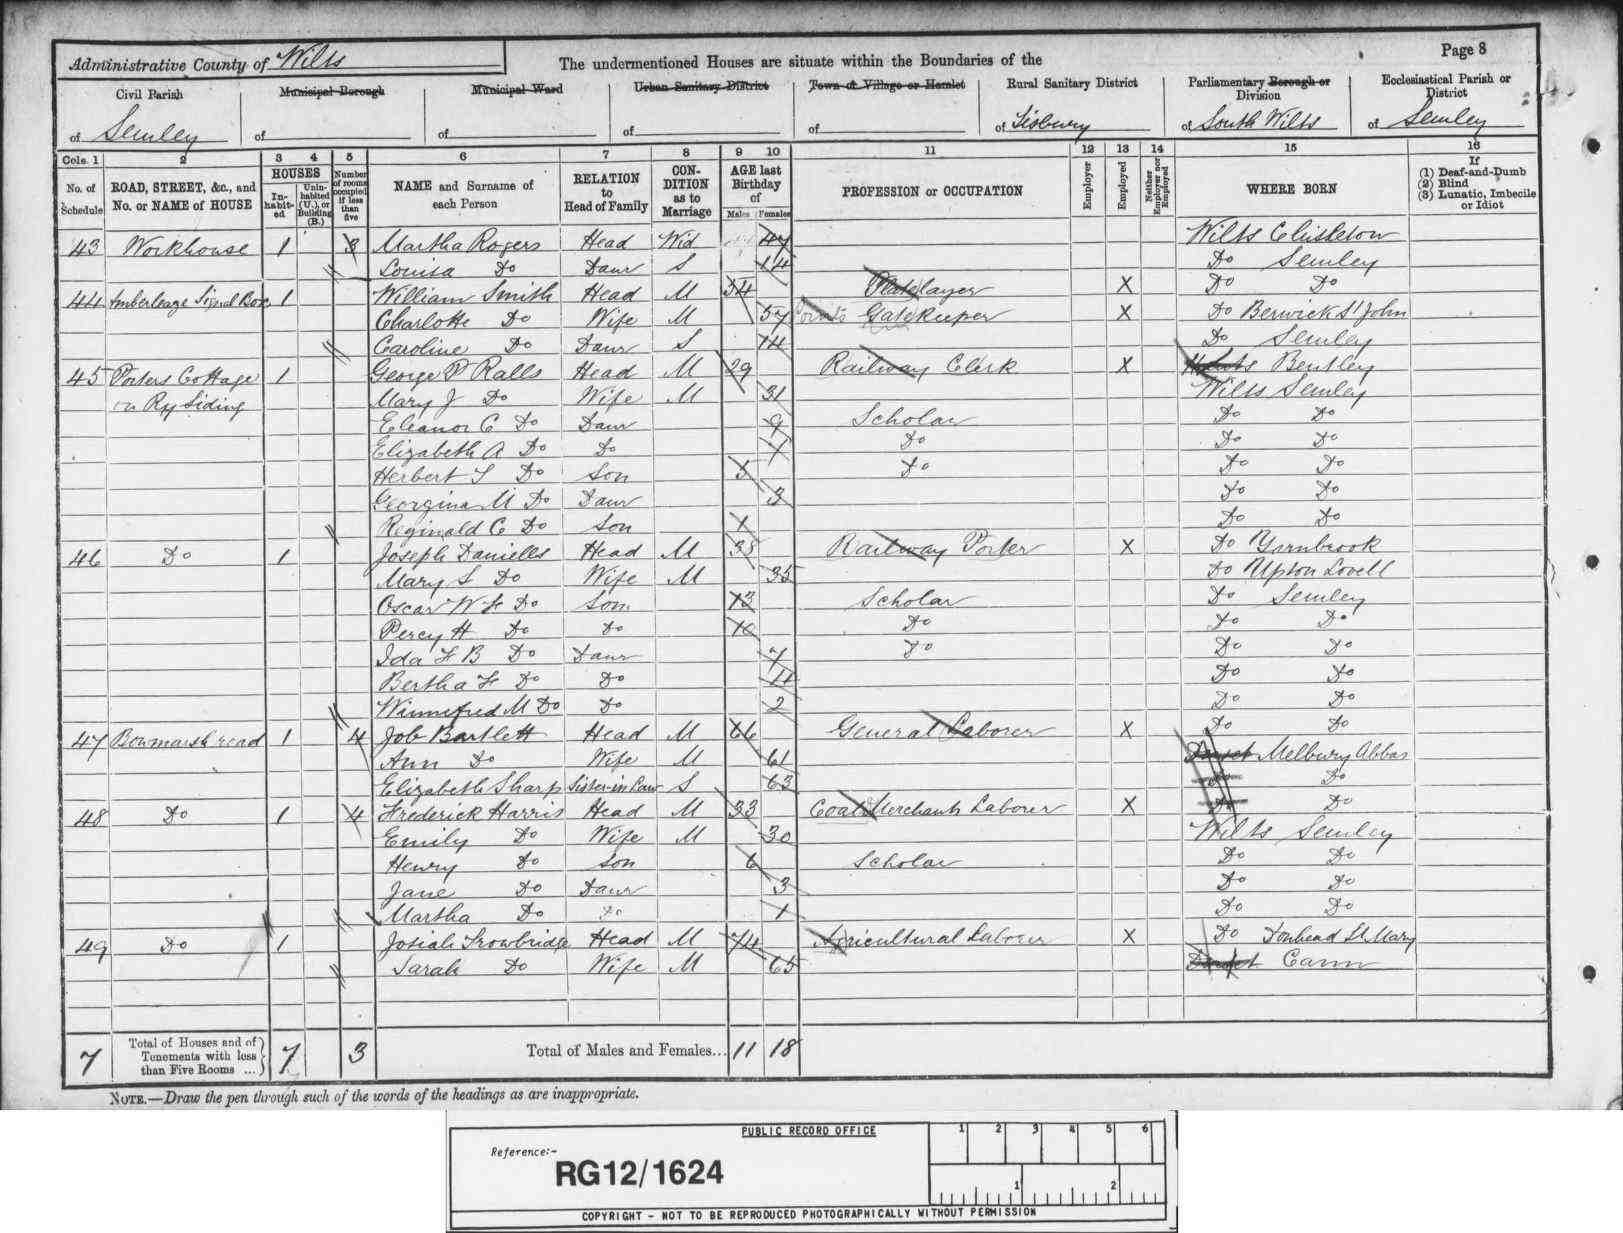 Administrative County of Wilts
The undermentioned Houses are situate within the Boundaries of the
Page 8
Civil Parish of Semley
Municipal Borough of
Municipal Ward of
Urban Sanitary District of
Town or Village or Hamlet of
Rural Sanitary District of Tisbury
Parliamentary Borough or Division of South Wilts
Ecclesiastical Parish or District of Semley
Cols. 1 2 3 4 5 6 7 8 9 10 11 12 13 14 15 16
No. of Schedule
ROAD, STREET, &c., and No. or NAME of HOUSE
HOUSES
In-habit-ed
Unin-habited (U.), or Building (B.)
Number of rooms occupied if less than five
NAME and Surname of each Person
RELATION to Head of Family
CON-DITION as to Marriage
AGE last Birthday of
Males Females
PROFESSION or OCCUPATION
Employer
Employed
Neither Employer nor Employed
WHERE BORN
If (1) Deaf-and-Dumb (2) Blind (3) Lunatic, Imbecile or Idiot
43 Workhouse 1 3 Martha Rogers Head Wid 47 Wilts
Louisa Do Daur S 14 Do Semley
44 Signal Box 1 William Smith Head M 54 Platelayer X Do Do
Charlotte Do Wife M 57 Gatekeeper X Do Berwick St John
Caroline Do Daur S 14 Do Semley
45 Porters Cottage 1 George P Ralls Head M 29 Railway Clerk X Hants Bentley
on Ry Siding Mary J Do Wife M 31 Wilts Semley
Eleanor C Do Daur 9 Scholar Do Do
Elizabeth A Do Do 7 Do Do Do
Herbert T Do Son 5 Do Do Do
Georgina M Do Daur 3 Do Do
Reginald C Do Son 1 Do Do
46 Do 1 Joseph Daniells Head M 38 Railway Porter X Do Yarnbrook
Mary S Do Wife M 35 Do Upton Lovell
Oscar W F Do Son 13 Scholar Do Semley
Percy H Do Do 10 Do Do Do
Ida F B Do Daur 7 Do Do Do
Bertha F Do Do 4 Do Do
Winnefred M Do Do 2 Do Do
47 Bowmarsh road 1 4 Job Bartlett Head M 66 General Laborer X Do Do
Ann Do Wife M 61 Dorset Melbury Abbas
Elizabeth Sharp Sister-in-Law S 63 Do Do
48 Do 1 4 Frederick Harris Head M 33 Coal Merchants Laborer X Do Do
Emily Do Wife M 30 Wilts Semley
Henry Do Son 6 Scholar Do Do
Jane Do Daur 3 Do Do
Martha Do Do 1 Do Do
49 Do 1 Josiah Trowbridge Head M 74 Agricultural Laborer X Do Donhead St Mary
Sarah Do Wife M 65 Dorset Cann
7 Total of Houses and of Tenements with less than Five Rooms ... 7 3 Total of Males and Females... 11 18
NOTE.—Draw the pen through such of the words of the headings as are inappropriate.
PUBLIC RECORD OFFICE
1 2 3 4 5 6
Reference:-
RG12/1624
1 2
COPYRIGHT - NOT TO BE REPRODUCED PHOTOGRAPHICALLY WITHOUT PERMISSION